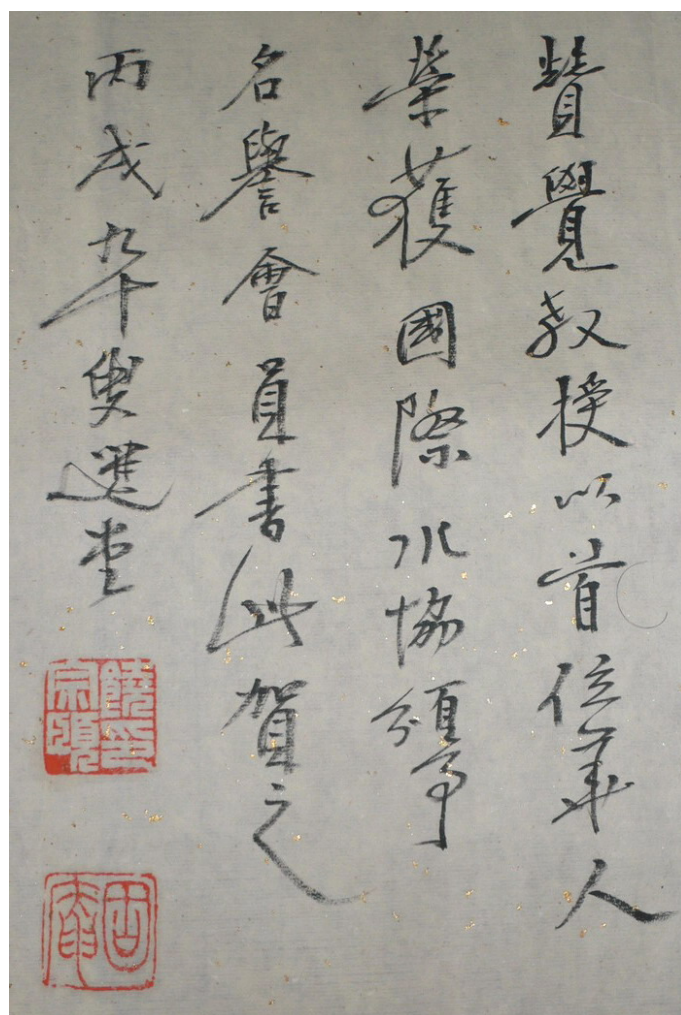 贊覺教授以首位華人
榮獲國際水協頒予
名譽會員書此賀之
丙戌九十叟選堂
饒宗頤印
固庵